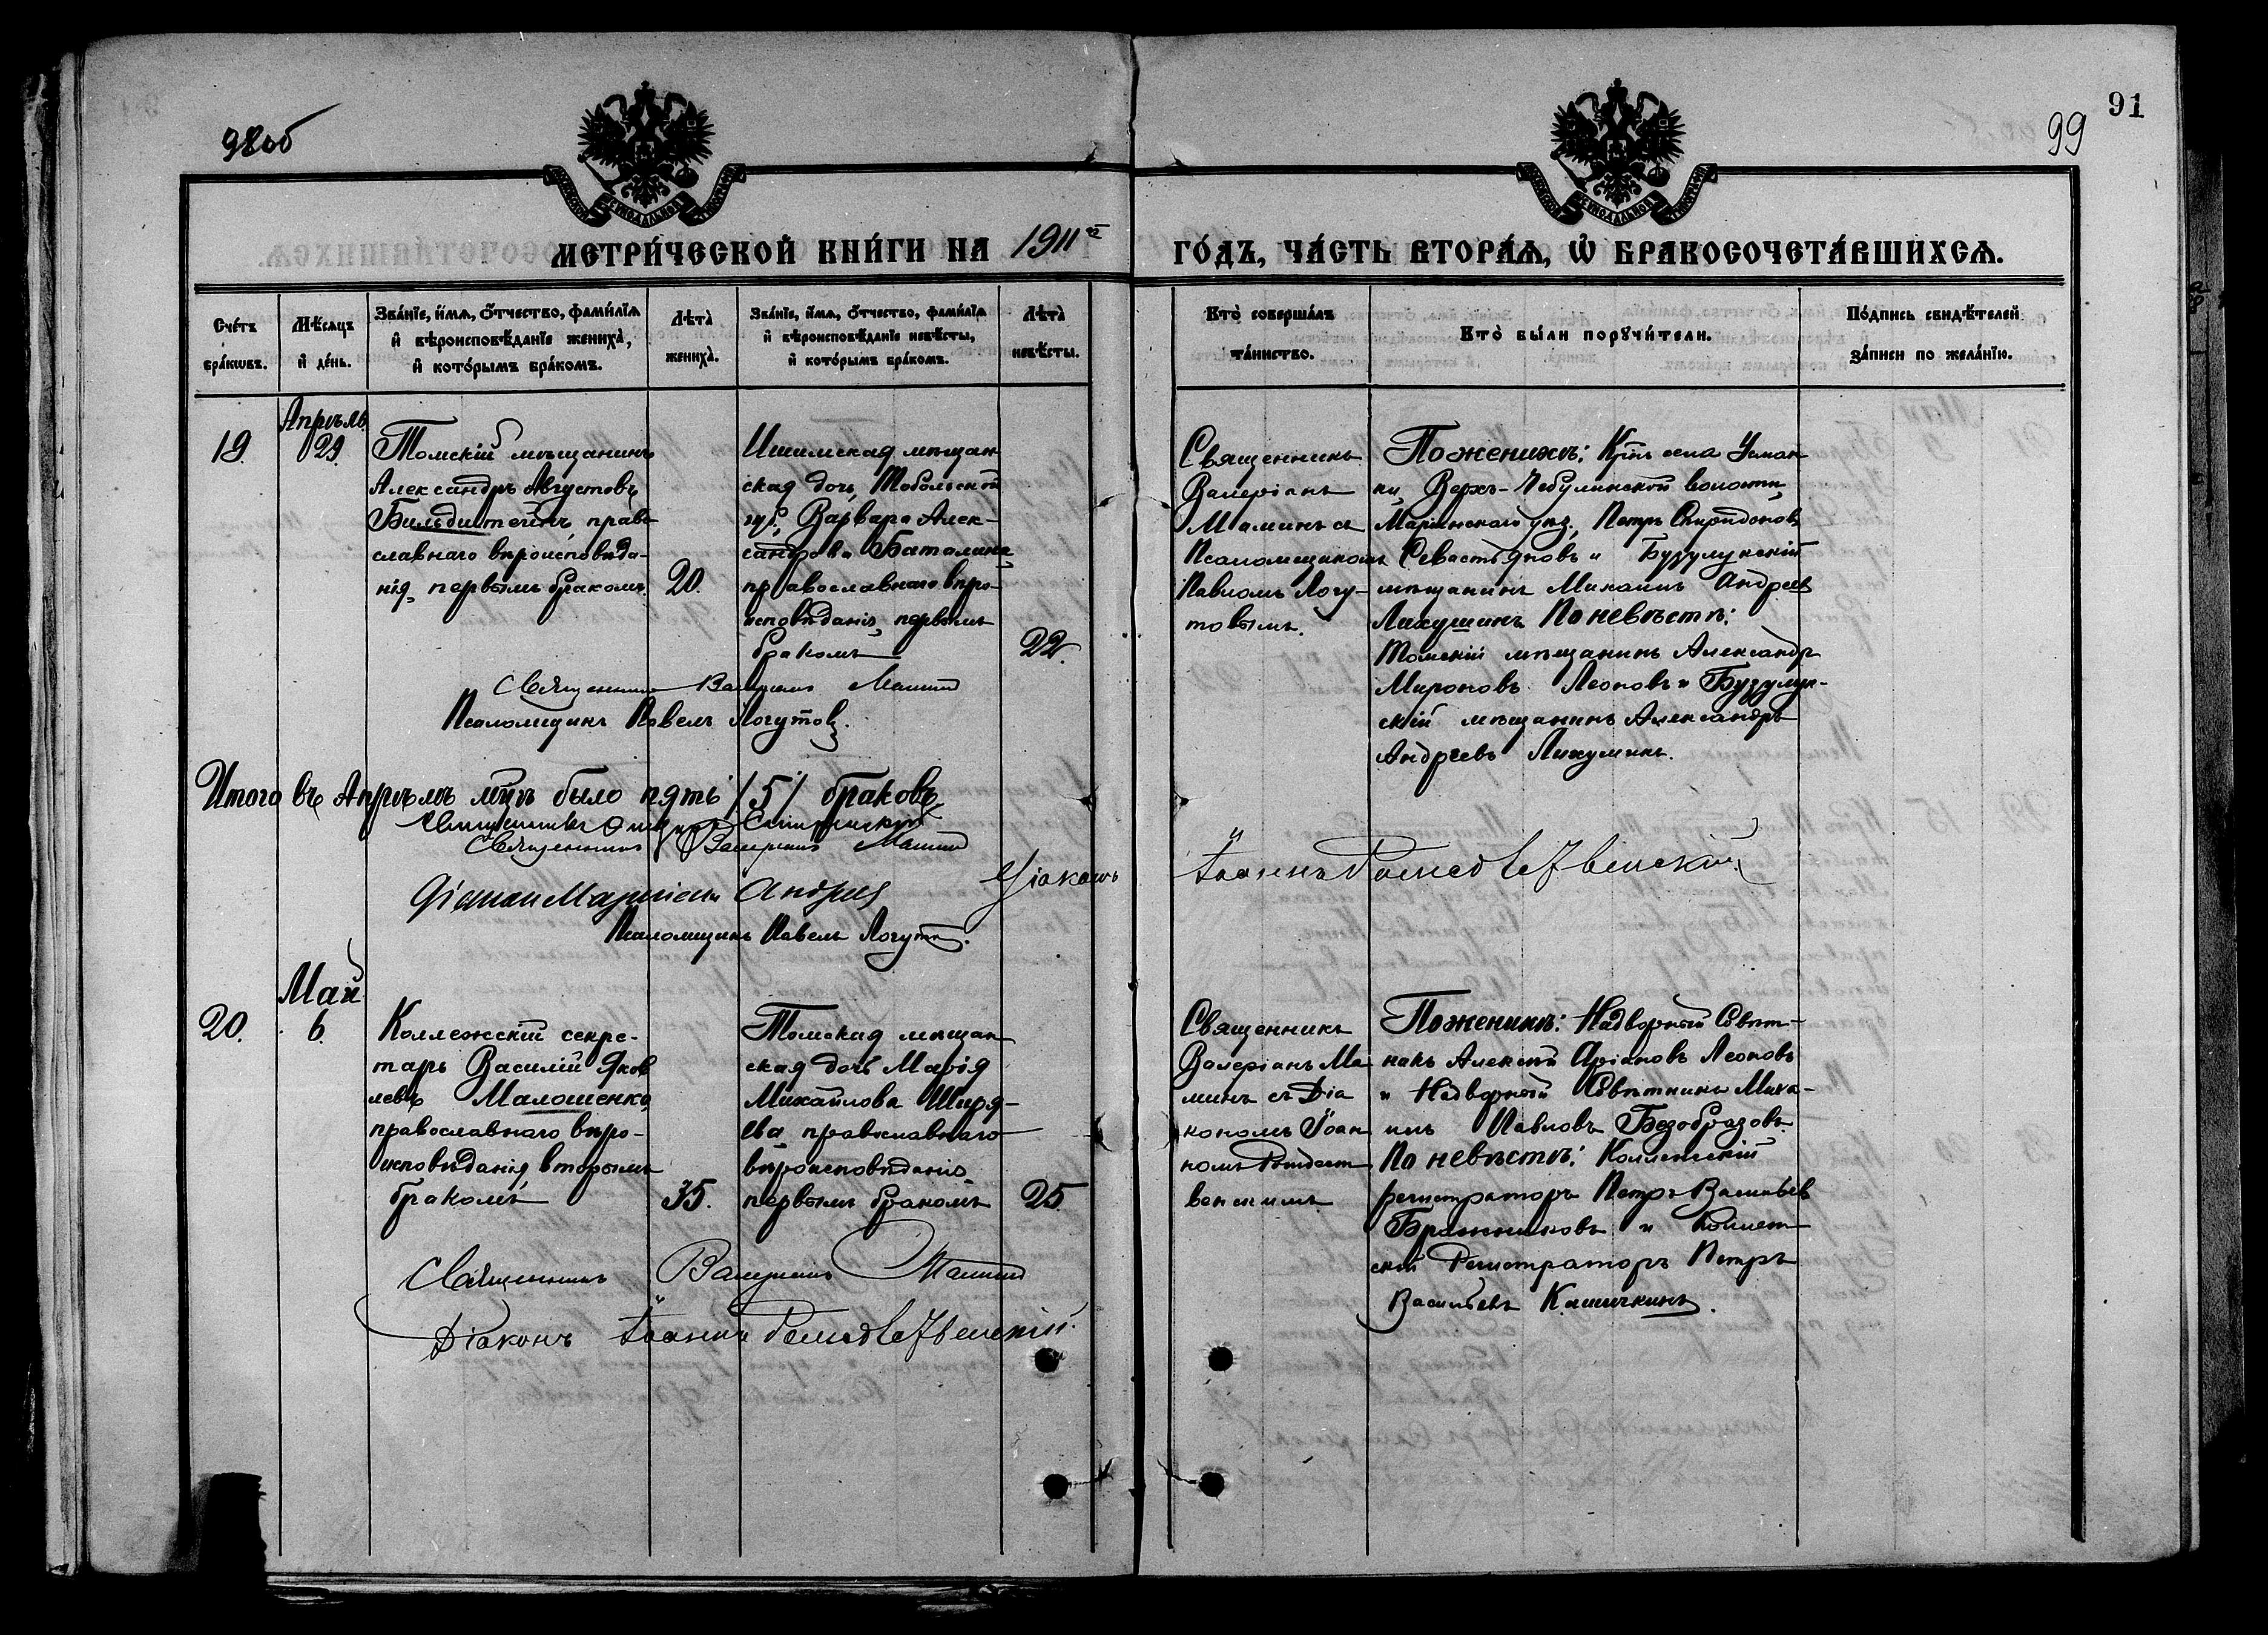 98об
99 91
МЕТРИ́ЧЕСКОЙ КНИ́ГИ НА 1911й ГО́ДЪ, ЧА́СТЬ ВТОРА́Ѧ, Ѡ҆ БРАКОСОЧЕТА́ВШИХСѦ.
Сче́тъ
бра́кѡвъ.
Мѣ́сѧцъ
и҆ де́нь.
Зва́нїе, и҆́мѧ, ѻ҆́тчество, фами́лїѧ
и҆ вѣроисповѣ́данїе жениха̀,
и҆ кото́рымъ бра́комъ.
Лѣта̀
жениха̀.
Зва́нїе, и҆́мѧ, ѻ҆́тчество, фами́лїѧ
и҆ вѣроисповѣ́данїе невѣ́сты,
и҆ кото́рымъ бра́комъ.
Лѣта̀
невѣ́сты.
Кто̀ соверша́лъ
та́инство.
Кто̀ бы́ли порꙋчи́тели.
По́дпись свидѣ́телей
за́писи по жела́нїю.
19.
Апрѣль
29.
Томскій мѣщанинъ
Александръ Августовъ
Бильдштейнъ, право
славнаго вѣроисповѣда-
нія, первымъ бракомъ.
20.
Ишимская мѣщан
ская дочь, Тобольской
губ., Варвара Алек-
сандрова Баталина,
православнаго вѣро-
исповѣданія, первымъ
бракомъ
22.
Священникъ
Валеріанъ
Маминъ съ
Псаломщикомъ
Павломъ Логу-
товымъ.
По женихѣ: Кр-нъ села Усман
ки, Верхъ-Чебулинской волости,
Маріинскаго уѣз. Петръ Спиридоновъ
Севастьяновъ и Бузулукскій
мѣщанинъ Михаилъ Андреев
Лихушинъ По невѣстѣ:
Томскій мѣщанинъ Александр
Мироновъ Леоновъ и Бузулук-
скій мѣщанинъ Александръ
Андреевъ Лихушинъ.
Священникъ Валеріанъ Маминъ
Псаломщикъ Павелъ Логутовъ.
Итого въ Апрѣлѣ м-цѣ было пять /5/ браковъ
Священникъ
Священникъ Валеріанъ Маминъ
Діаконъ Андрей
Діаконъ Іоаннъ Рождественскій
Псаломщикъ Павелъ Логутов.
20.
Май
6.
Коллежскій секре-
тарь Василій Яков
левъ Малошенко,
православнаго вѣро-
исповѣданія, вторымъ
бракомъ
35.
Томская мѣщан
ская дочь Марія
Михайлова Ширя-
ева, православнаго
вѣроисповѣданія,
первымъ бракомъ
25.
Священникъ
Валеріанъ Ма
минъ съ Діа
кономъ Іоан
номъ Рождест
венскимъ
По женихѣ: Надворный Совѣт-
никъ Алексѣй Леоновъ
и Надворный Совѣтникъ Миха-
илъ Павловъ Безобразовъ.
По невѣстѣ: Коллежскій
регистраторъ Петръ Васильев
Бражниковъ и Коллеж
скій Регистраторъ Петръ
Васильевъ Калачикинъ.
Священникъ Валеріанъ Маминъ
Діаконъ Іоаннъ Рождественскій.